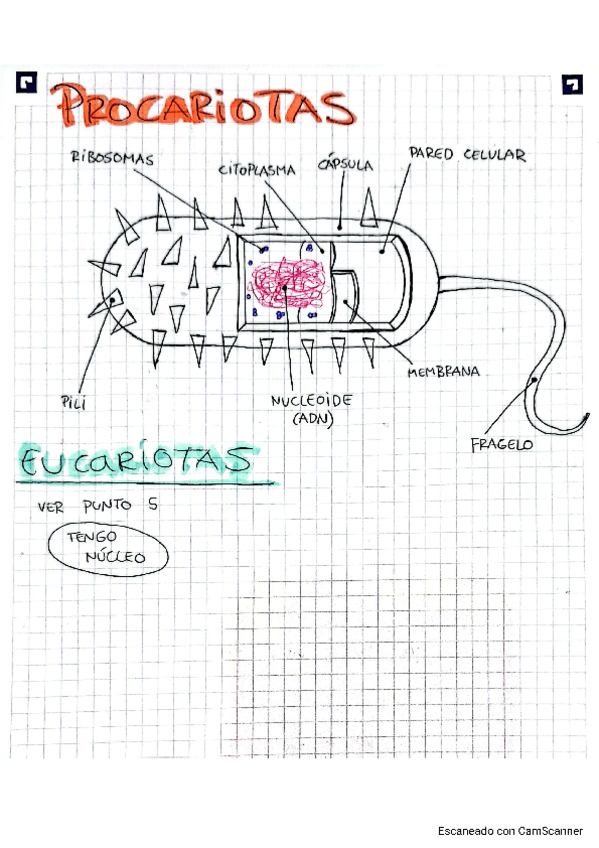 PROCARIOTAS
RIBOSOMAS
CITOPLASMA
CÁPSULA
PARED CELULAR
PILI
NUCLEOIDE
(ADN)
MEMBRANA
FRAGELO
EUCARIOTAS
VER PUNTO 5
TENGO
NÚCLEO
Escaneado con CamScanner